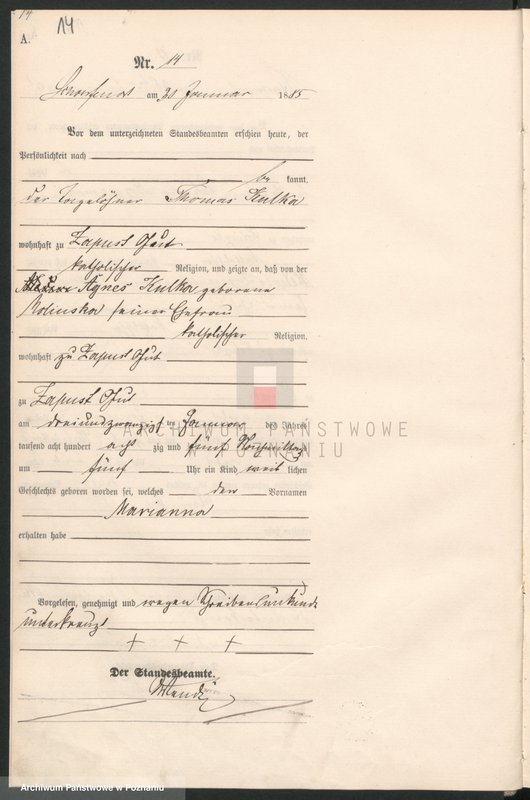 14
A. 14
Nr. 14
am 30 Januar 1885
Vor dem unterzeichneten Standesbeamten erschien heute, der
Persönlichkeit nach
be kannt,
der Tagelöhner Thomas Kulka
wohnhaft zu Zapust Gut
katholischer Religion, und zeigte an, daß von der
Agnes Kulka geborene
Molinska seiner Ehefrau
katholischer Religion,
wohnhaft zu Zapust Gut
zu Zapust Gut
am dreiundzwanzigsten Januar des Jahres
tausend acht hundert acht zig und fünf Nachmittag
um fünf Uhr ein Kind weib lichen
Geschlechts geboren worden sei, welches den Vornamen
Marianna
erhalten habe
Vorgelesen, genehmigt und wegen Schreibensunkunde
unterkreuzt
+ + +
Der Standesbeamte.
ARCHIWUM PAŃSTWOWE
W POZNANIU
Archiwum Państwowe w Poznaniu